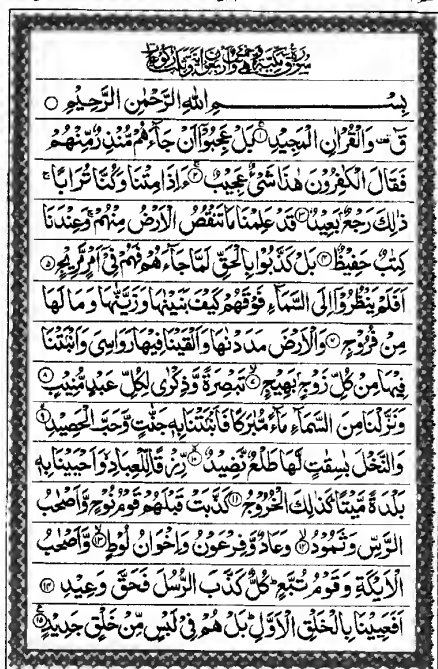 بِسْمِ اللهِ الرَّحْمٰنِ الرَّحِيْمِ ○
قٓ ۚ وَالْقُرْاٰنِ الْمَجِيْدِ ۱ بَلْ عَجِبُوْٓا اَنْ جَآءَهُمْ مُّنْذِرٌ مِّنْهُمْ
فَقَالَ الْكٰفِرُوْنَ هٰذَا شَیْءٌ عَجِيْبٌ ۲ ءَاِذَا مِتْنَا وَكُنَّا تُرَابًا ۚ
ذٰلِكَ رَجْعٌۢ بَعِيْدٌ ۳ قَدْ عَلِمْنَا مَا تَنْقُصُ الْاَرْضُ مِنْهُمْ ۚ وَعِنْدَنَا
كِتٰبٌ حَفِيْظٌ ۴ بَلْ كَذَّبُوْا بِالْحَقِّ لَمَّا جَآءَهُمْ فَهُمْ فِیْٓ اَمْرٍ مَّرِيْجٍ ۵
اَفَلَمْ يَنْظُرُوْٓا اِلَى السَّمَآءِ فَوْقَهُمْ كَيْفَ بَنَيْنٰهَا وَزَيَّنّٰهَا وَمَا لَهَا
مِنْ فُرُوْجٍ ۶ وَالْاَرْضَ مَدَدْنٰهَا وَاَلْقَيْنَا فِيْهَا رَوَاسِیَ وَاَنْۢبَتْنَا
فِيْهَا مِنْ كُلِّ زَوْجٍۭ بَهِيْجٍ ۷ تَبْصِرَةً وَّذِكْرٰى لِكُلِّ عَبْدٍ مُّنِيْبٍ ۸
وَنَزَّلْنَا مِنَ السَّمَآءِ مَآءً مُّبٰرَكًا فَاَنْۢبَتْنَا بِهٖ جَنّٰتٍ وَّحَبَّ الْحَصِيْدِ ۹
وَالنَّخْلَ بٰسِقٰتٍ لَّهَا طَلْعٌ نَّضِيْدٌ ۱۰ رِّزْقًا لِّلْعِبَادِ ۙ وَاَحْيَيْنَا بِهٖ
بَلْدَةً مَّيْتًا ؕ كَذٰلِكَ الْخُرُوْجُ ۱۱ كَذَّبَتْ قَبْلَهُمْ قَوْمُ نُوْحٍ وَّاَصْحٰبُ
الرَّسِّ وَثَمُوْدُ ۱۲ وَعَادٌ وَّفِرْعَوْنُ وَاِخْوَانُ لُوْطٍ ۱۳ وَّاَصْحٰبُ
الْاَيْكَةِ وَقَوْمُ تُبَّعٍ ؕ كُلٌّ كَذَّبَ الرُّسُلَ فَحَقَّ وَعِيْدِ ۱۴
اَفَعَيِيْنَا بِالْخَلْقِ الْاَوَّلِ ؕ بَلْ هُمْ فِیْ لَبْسٍ مِّنْ خَلْقٍ جَدِيْدٍ ۱۵